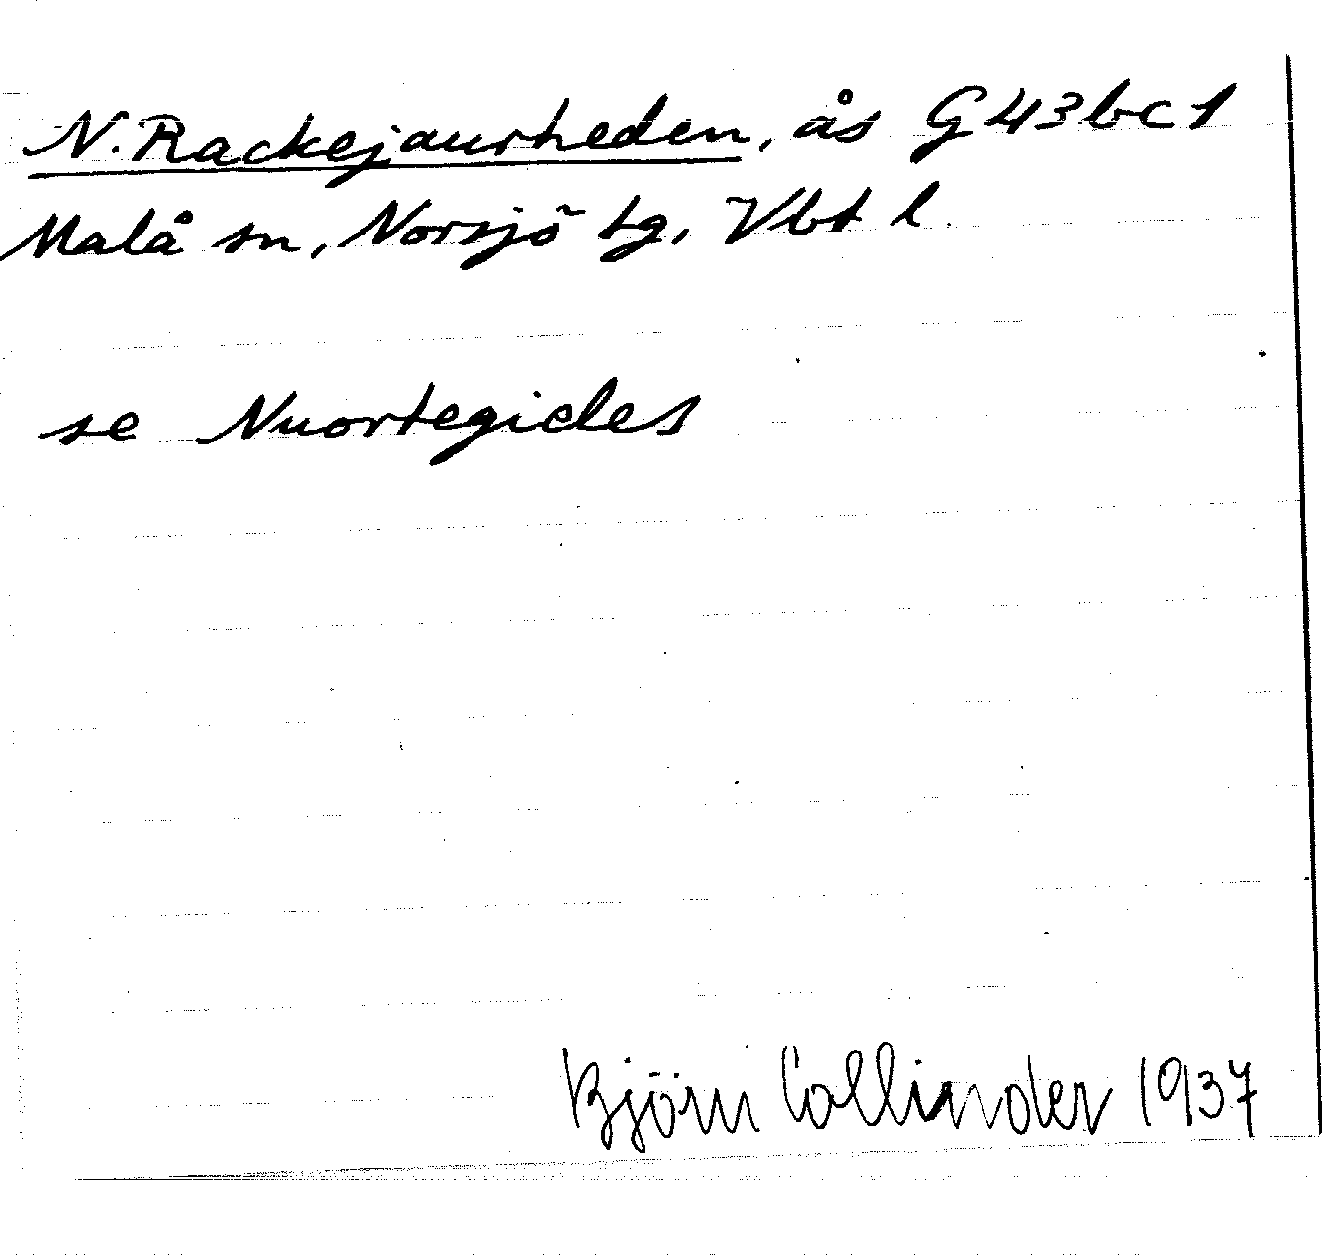 N. Rackejaurheden, ås G43bc1
Malå sn, Norsjö tg, Vbt l
se Nuortegieles
Björn Collinder 1937